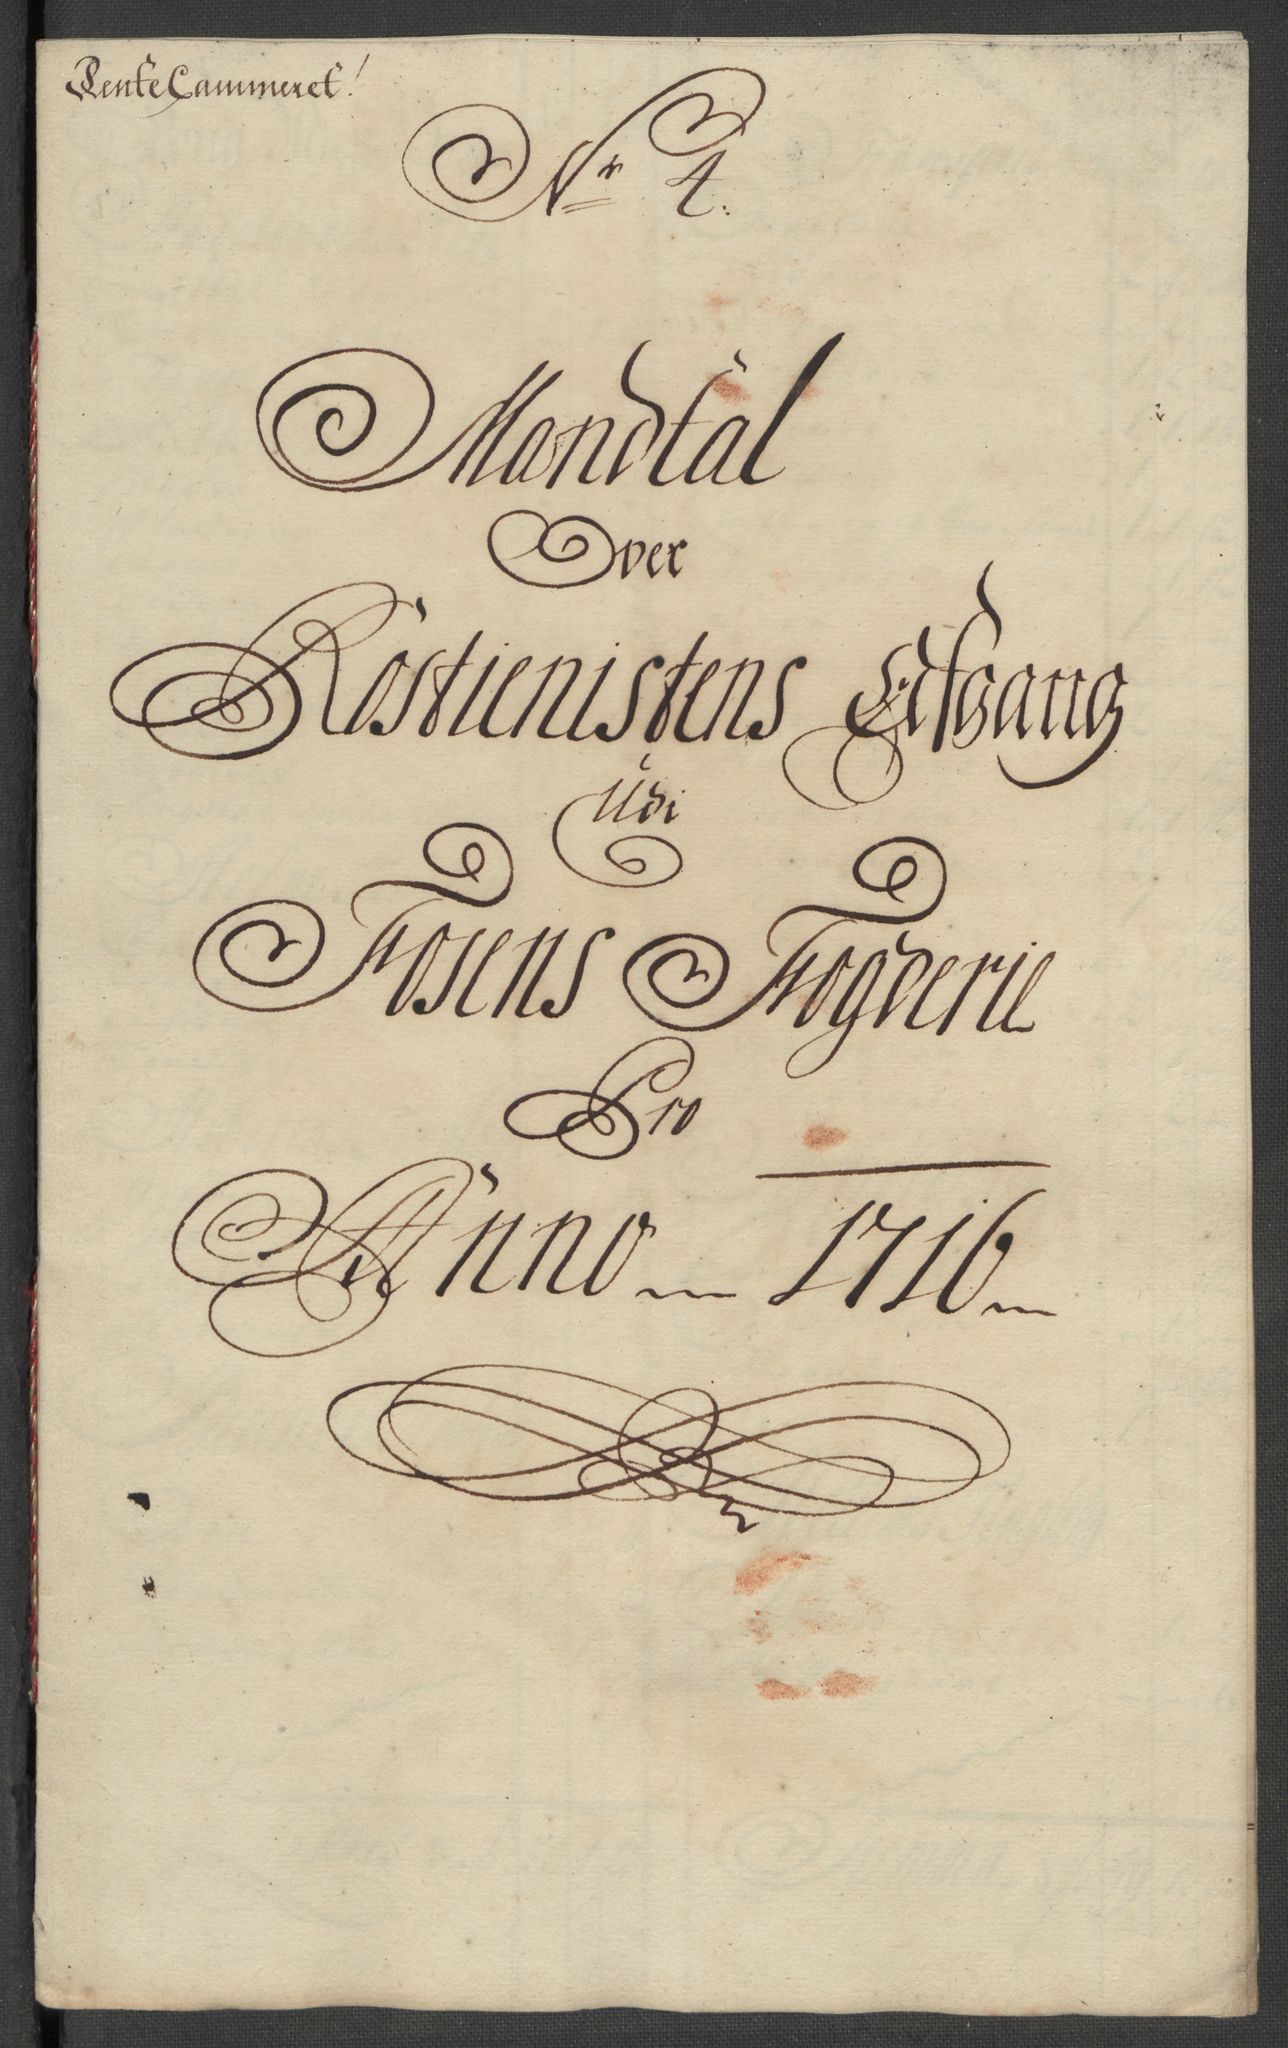 RenteCammeret!
Nr 4.
Mandtal
Over
Rostienistens Afgang
Udi
Fosens Fogderie
Pro
Anno 1716